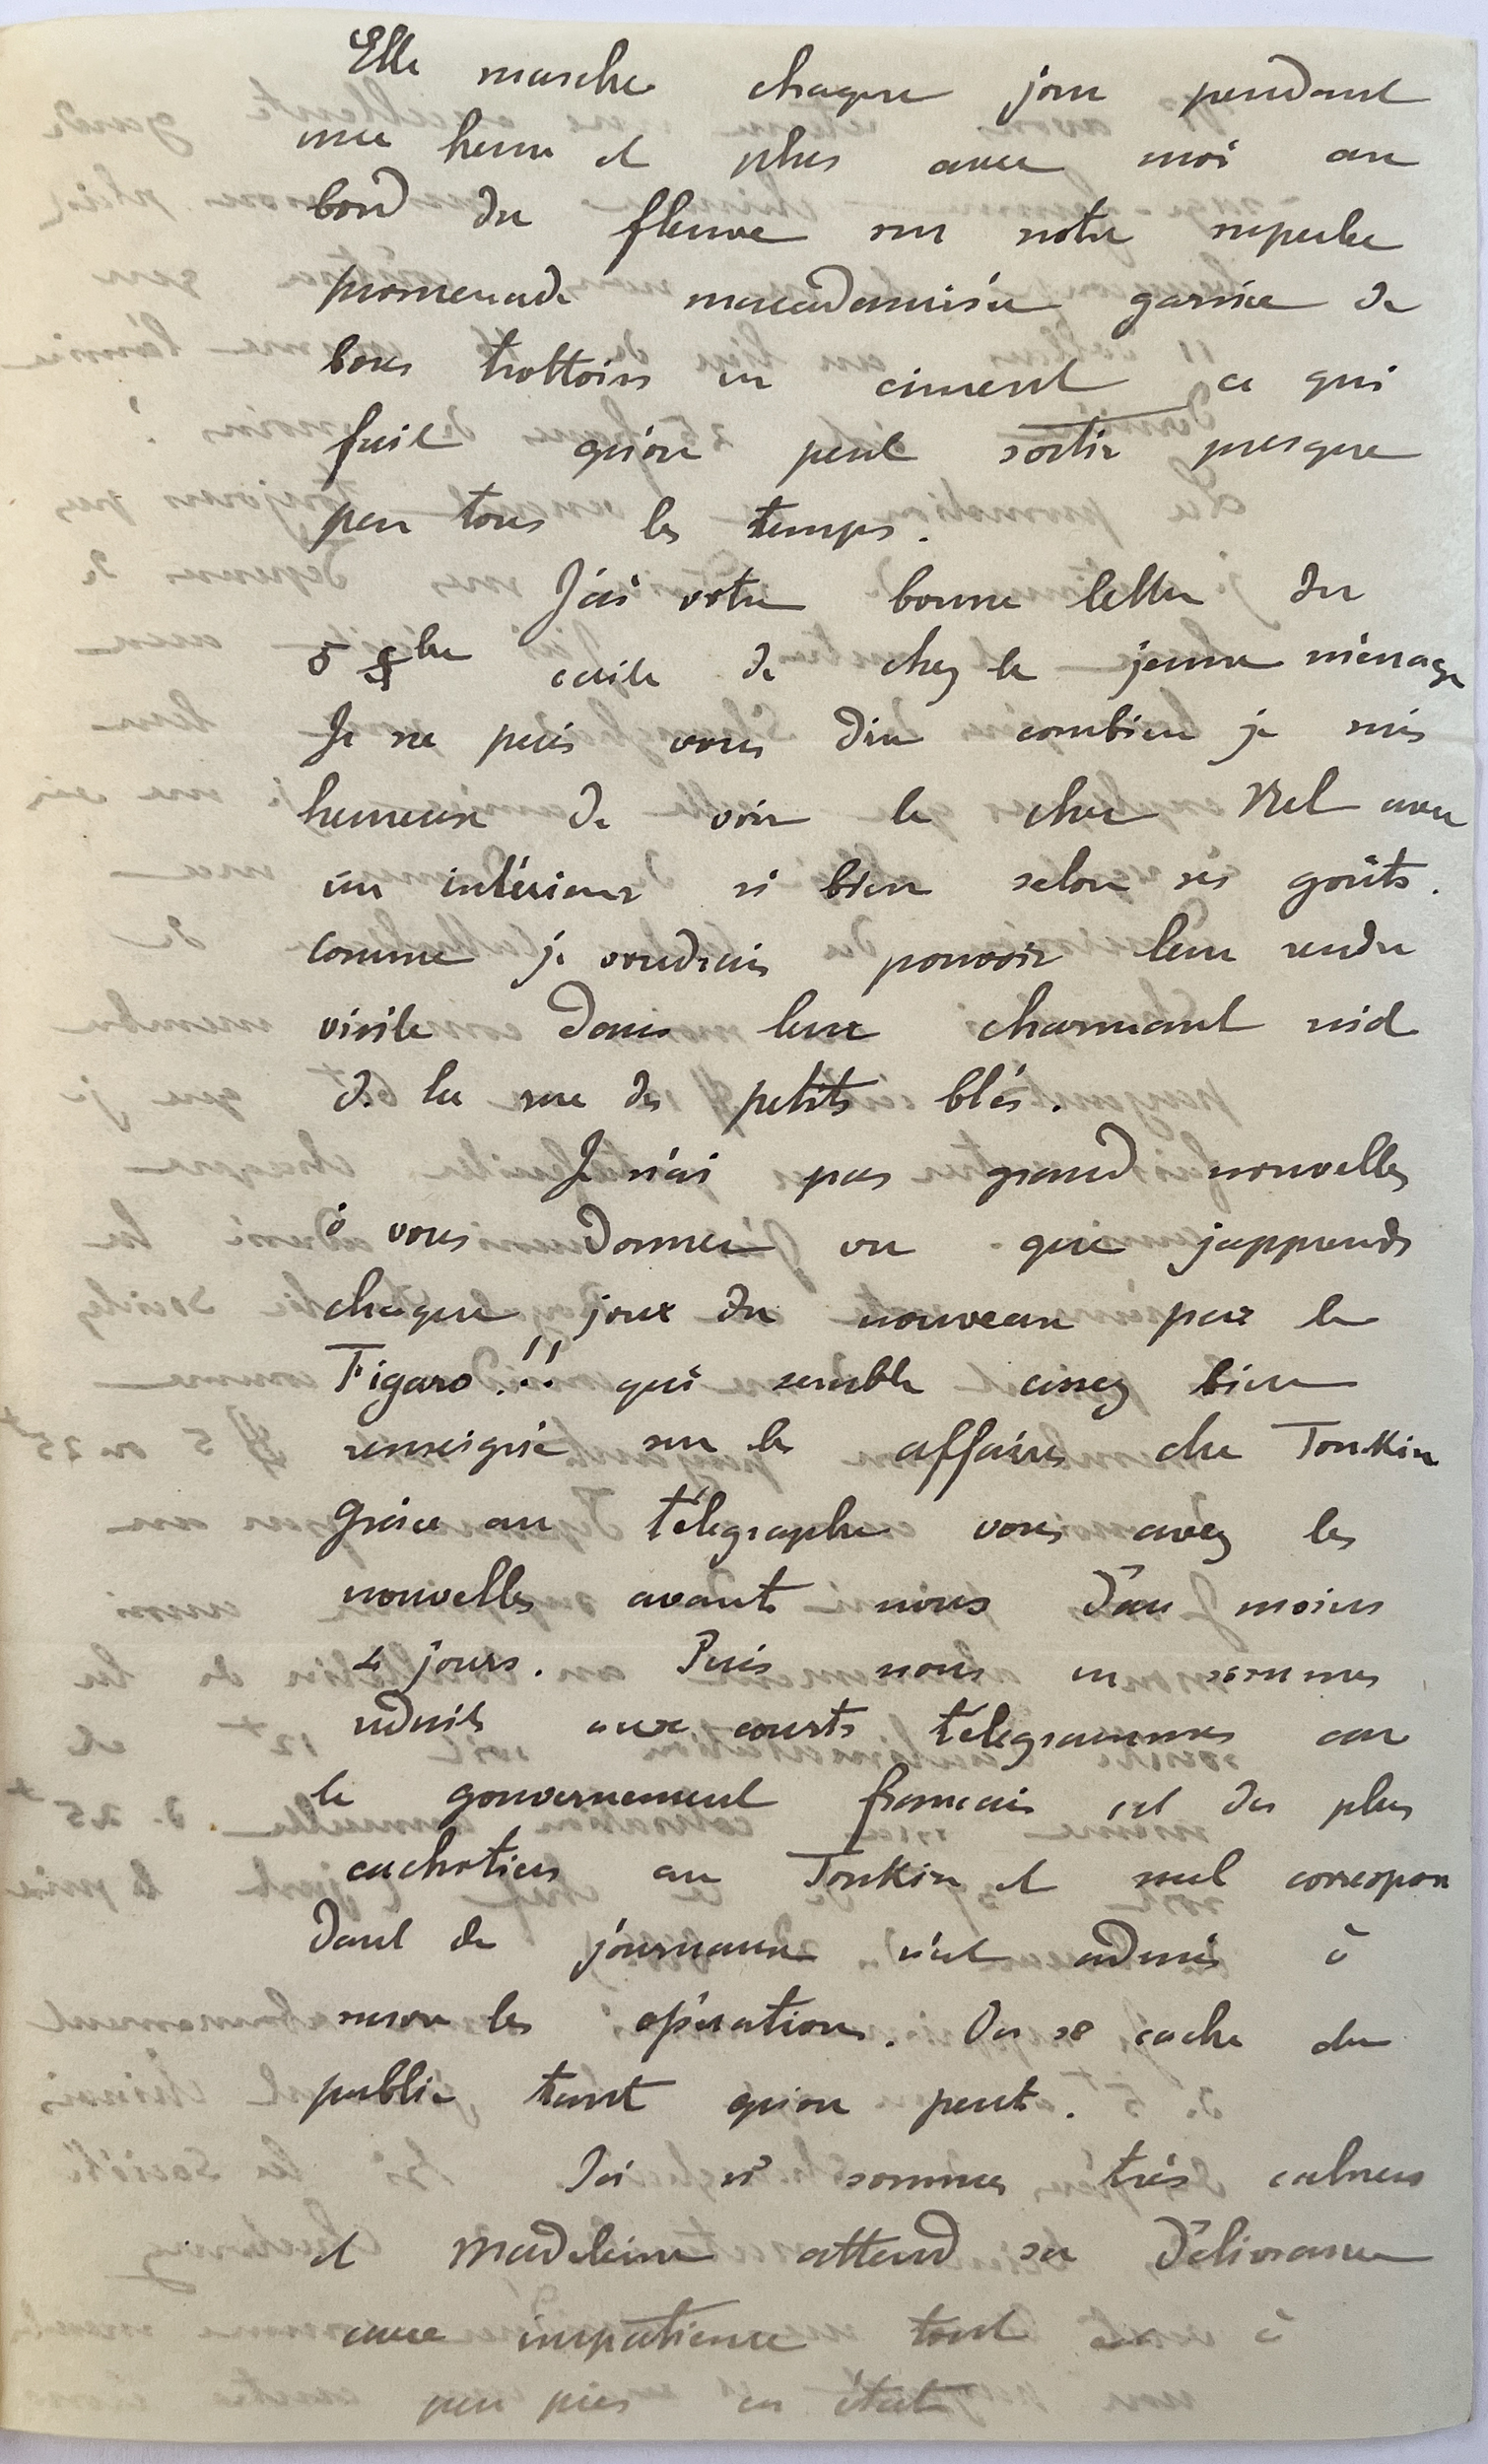 Elle marche chaque jour pendant
une heure et plus avec moi au
bord du fleuve sur notre superbe
promenade macadamisée garnie de
bons trottoirs en ciment ce qui
fait qu'on peut sortir presque
par tous les temps.
J'ai votre bonne lettre du
5 bre écrite de chez le jeune ménage
Je ne puis vous dire combien je suis
heureux de voir le cher Nel avec
un intérieur si bien selon ses goûts.
comme je voudrais pouvoir leur rendre
visite dans leur charmant nid
de la rue des petits blés.
Je n'ai pas grand nouvelles
à vous donner vu que j'apprends
chaque jour du nouveau par le
Figaro!!! qui semble assez bien
renseigné sur les affaires du Tonkin
Grâce au télégraphe vous avez les
nouvelles avant nous d'au moins
4 jours. Puis nous en sommes
réduits aux courts télégrammes car
le gouvernement francais est des plus
cachotiers au Tonkin et nul correspon
dant de journaux n'est admis à
suivre les opérations. On se cache du
public tant qu'on peut.
Ici ns sommes très calmes
et Madeleine attend sa délivrance
avec impatience tout à
peu près en état